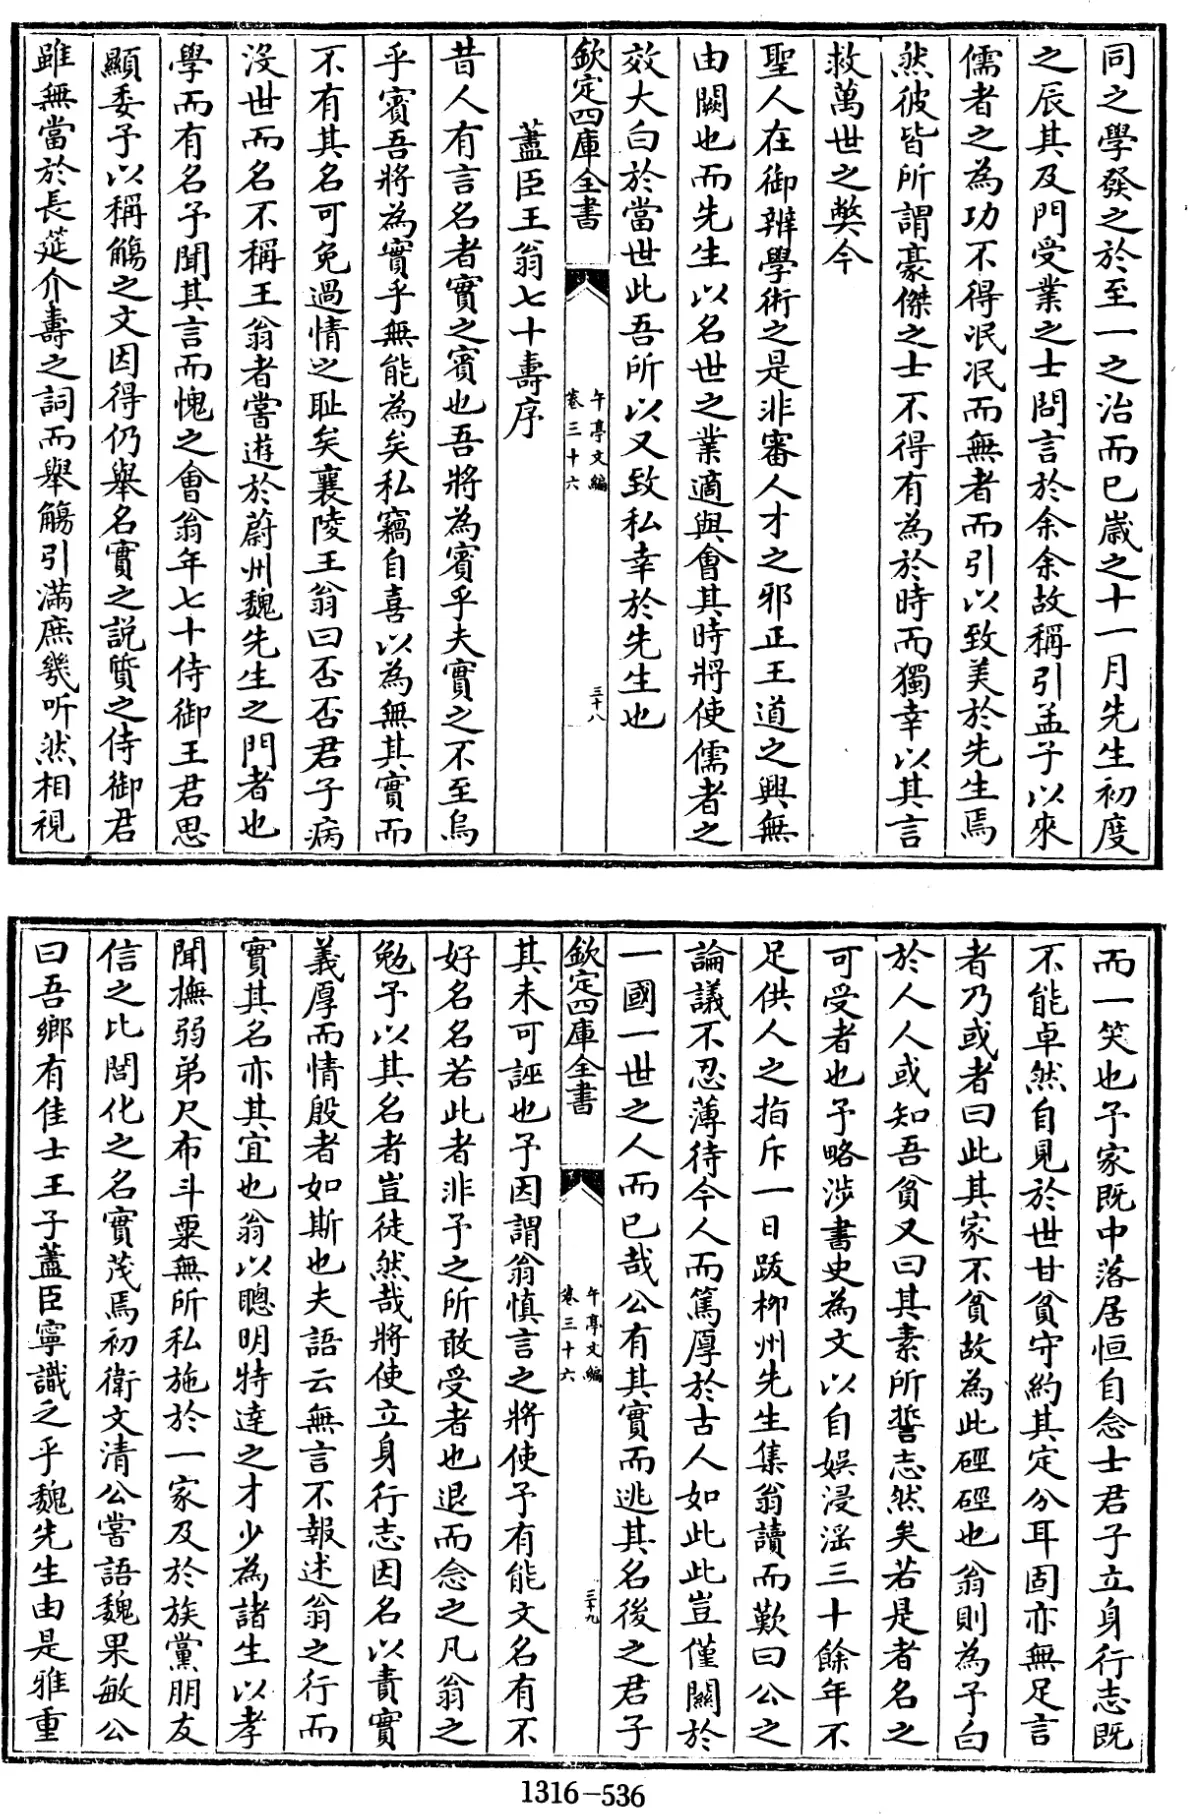 同之學發之於至一之治而已歲之十一月先生初度
之辰其及門受業之士問言於余余故稱引孟子以來
儒者之為功不得泯泯而無者而引以致美於先生焉
然彼皆所謂豪傑之士不得有為於時而獨幸以其言
救萬世之弊今
聖人在御辨學術之是非審人才之邪正王道之興無
由闕也而先生以名世之業適與會其時將使儒者之
效大白於當世此吾所以又致私幸於先生也
欽定四庫全書
午亭文編
卷三十六
三十八
藎臣王翁七十壽序
昔人有言名者實之賓也吾將為賓乎夫實之不至烏
乎賓吾將為實乎無能為矣私竊自喜以為無其實而
不有其名可免過情之恥矣襄陵王翁曰否否君子病
沒世而名不稱王翁者嘗遊於蔚州魏先生之門者也
學而有名予聞其言而愧之會翁年七十侍御王君思
顯委予以稱觴之文因得仍舉名實之說質之侍御君
雖無當於長筵介壽之詞而舉觴引滿庶幾听然相視
而一笑也予家既中落居恒自念士君子立身行志既
不能卓然自見於世甘貧守約其定分耳固亦無足言
者乃或者曰此其家不貧故為此硜硜也翁則為予白
於人人或知吾貧又曰其素所誓志然矣若是者名之
可受者也予略涉書史為文以自娛浸滛三十餘年不
足供人之指斥一日跋柳州先生集翁讀而歎曰公之
論議不忍薄待今人而篤厚於古人如此此豈僅關於
一國一世之人而已哉公有其實而逃其名後之君子
欽定四庫全書
午亭文編
卷三十六
三十九
其未可誣也予因謂翁慎言之將使予有能文名有不
好名名若此者非予之所敢受者也退而念之凡翁之
勉予以其名者豈徒然哉將使立身行志因名以責實
義厚而情殷者如斯也夫語云無言不報述翁之行而
實其名亦其宜也翁以聰明特達之才少為諸生以孝
聞撫弱弟尺布斗粟無所私施於一家及於族黨朋友
信之比閭化之名實茂焉初衛文清公嘗語魏果敏公
曰吾鄉有佳士王子藎臣寧識之乎魏先生由是雅重
1316-536